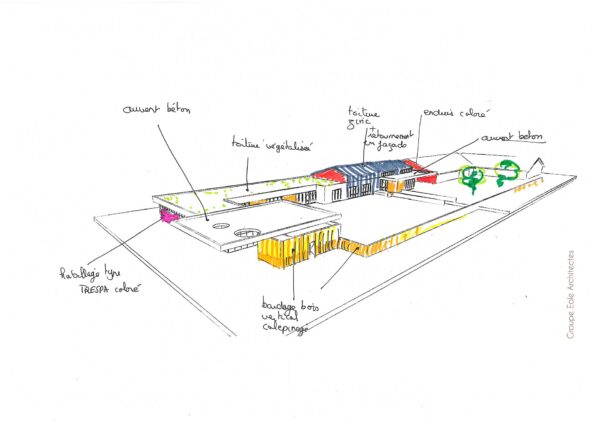 auvent béton
toiture végétalisé
toiture
zinc
+
retournement
en façade
enduis coloré
auvent béton
habillage type
TRESPA coloré
bardage bois
vertical
calepinage
Groupe Eole Architectes